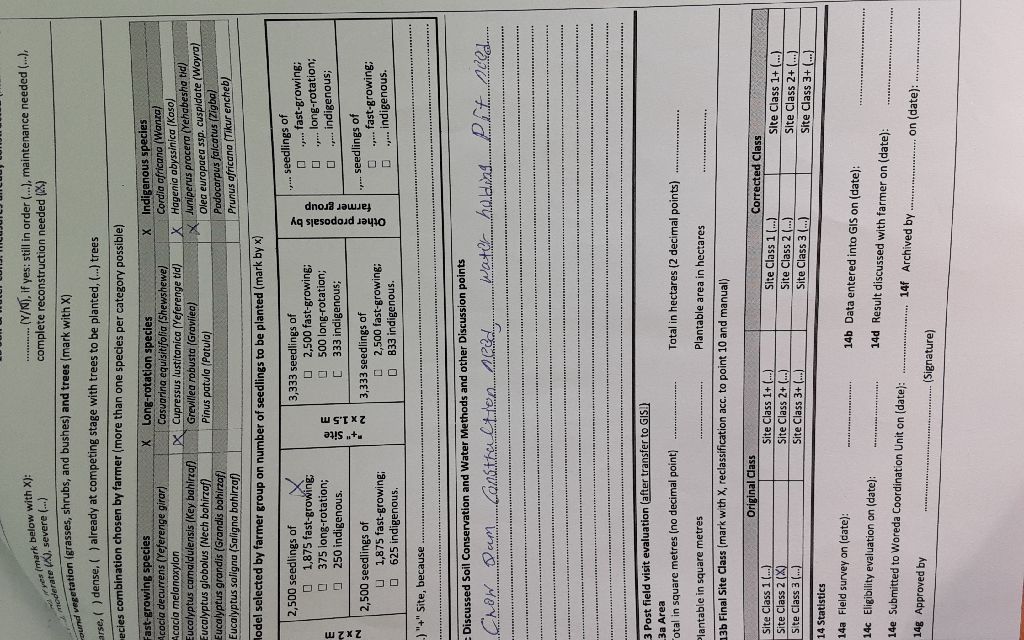 (mark below with X):
moderate (X), severe (...)
(Y/N), if yes: still in order (...), maintenance needed (...),
complete reconstruction needed (X)
ound vegetation (grasses, shrubs, and bushes) and trees (mark with X)
arse, ( ) dense, ( ) already at competing stage with trees to be planted, (...) trees
ecies combination chosen by farmer (more than one species per category possible)
Fast-growing species X Long-rotation species X Indigenous species
Acacia decurrens (Yeferenge girar) Casuarina equisitifolia (Shewshewe) Cordia africana (Wanza)
Acacia melanoxylon X Cupressus lustitanica (Yeferenge tid) X Hagenia abyssinica (Koso)
Eucalyptus camaldulensis (Key bahirzaf) Grevillea robusta (Gravilea) X Juniperus procera (Yehabesha tid)
Eucalyptus globolus (Nech bahirzaf) Pinus patula (Patula) Olea europaea ssp. cuspidate (Woyra)
Eucalyptus grandis (Grandis bahirzaf) Podocarpus falcatus (Zigba)
Eucalyptus saligna (Saligna bahirzaf) Prunus africana (Tikur encheb)
lodel selected by farmer group on number of seedlings to be planted (mark by x)
2 x 2 m
2,500 seedlings of
1,875 fast-growing; X
375 long-rotation;
250 indigenous.
2,500 seedlings of
1,875 fast-growing;
625 indigenous.
"+" Site
2 x 1.5 m
3,333 seedlings of
2,500 fast-growing;
500 long-rotation;
333 indigenous;
3,333 seedlings of
2,500 fast-growing;
833 indigenous.
Other proposals by
farmer group
.,... seedlings of
.,... fast-growing;
.,... long-rotation;
.,... indigenous;
.,... seedlings of
.,... fast-growing;
.,... indigenous.
..) "+" Site, because
Discussed Soil Conservation and Water Methods and other Discussion points
need water holding Pit need
3 Post field visit evaluation (after transfer to GIS!)
3a Area
otal in square metres (no decimal point) Total in hectares (2 decimal points)
Plantable in square metres Plantable area in hectares
13b Final Site Class (mark with X, reclassification acc. to point 10 and manual)
Original Class Corrected Class
Site Class 1 (...) Site Class 1+ (...) Site Class 1 (...) Site Class 1+ (...)
Site Class 2 (X) Site Class 2+ (...) Site Class 2 (...) Site Class 2+ (...)
Site Class 3 (...) Site Class 3+ (...) Site Class 3 (...) Site Class 3+ (...)
14 Statistics
14a Field survey on (date): 14b Data entered into GIS on (date):
14c Eligibility evaluation on (date): 14d Result discussed with farmer on (date):
14e Submitted to Woreda Coordination Unit on (date): 14f Archived by on (date):
14g Approved by (Signature)